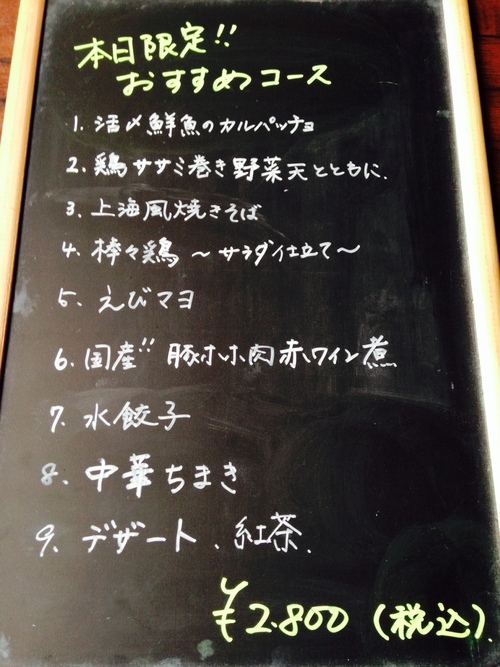 本日限定!!
おすすめコース
1. 活〆鮮魚のカルパッチョ
2. 鶏ササミ巻き野菜天とともに.
3. 上海風焼きそば
4. 棒々鶏 〜サラダ仕立て〜
5. えびマヨ
6. 国産!! 豚ホホ肉赤ワイン煮
7. 水餃子
8. 中華ちまき
9. デザート、紅茶.
¥2.800 (税込)